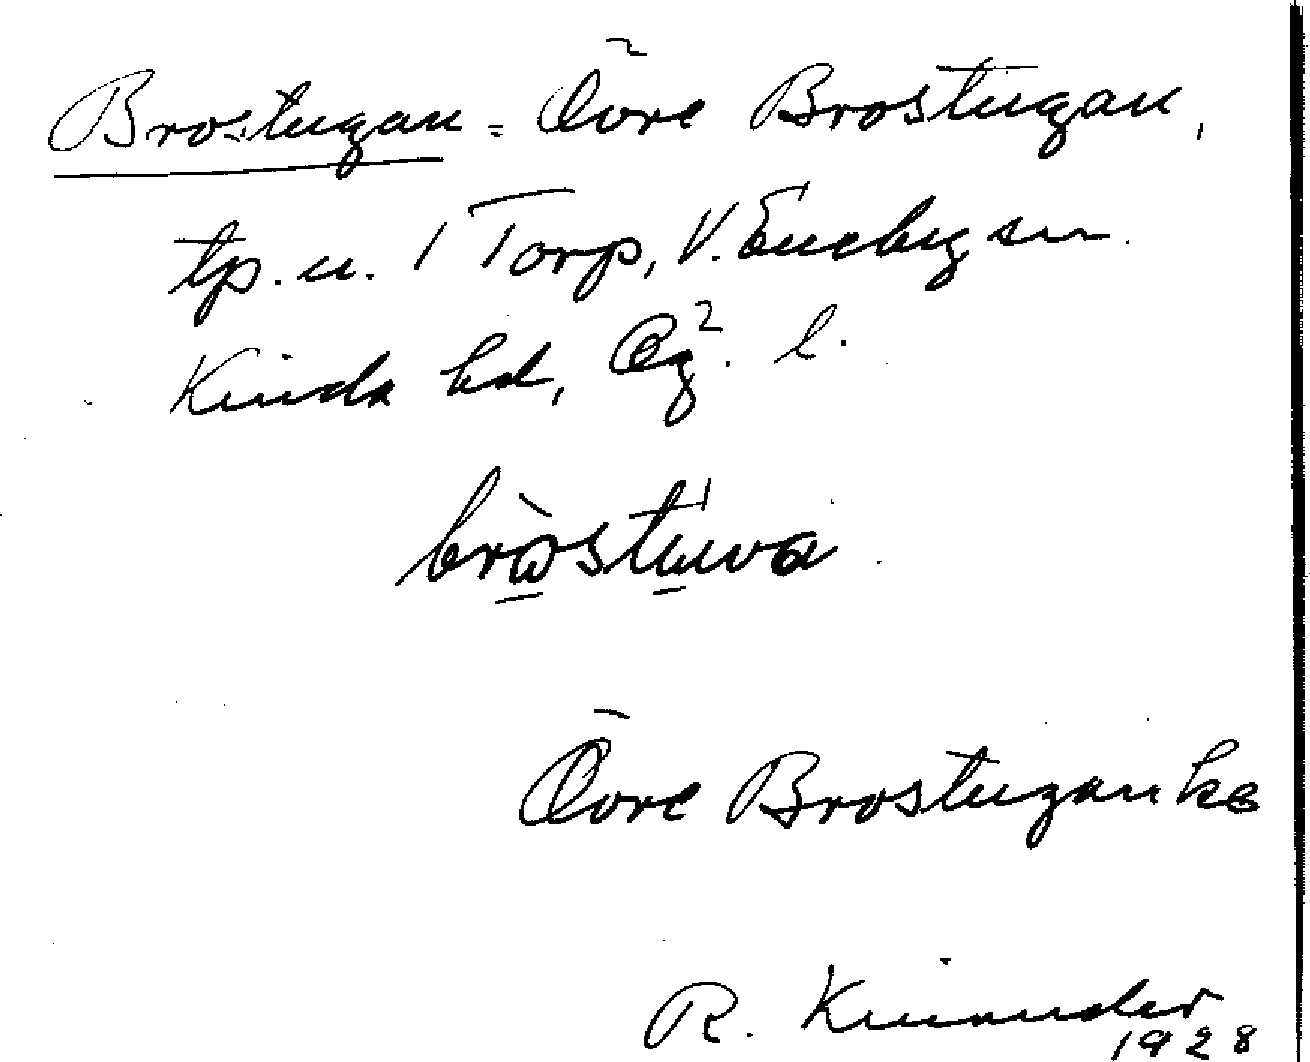 Brostugan = Övre Brostugan,
tp. u. 1 Torp, V. Eneby sn.
Kinda hd, Ög. l.
bròstúwa
Övre Brostugan ke
R. Kinander
1928